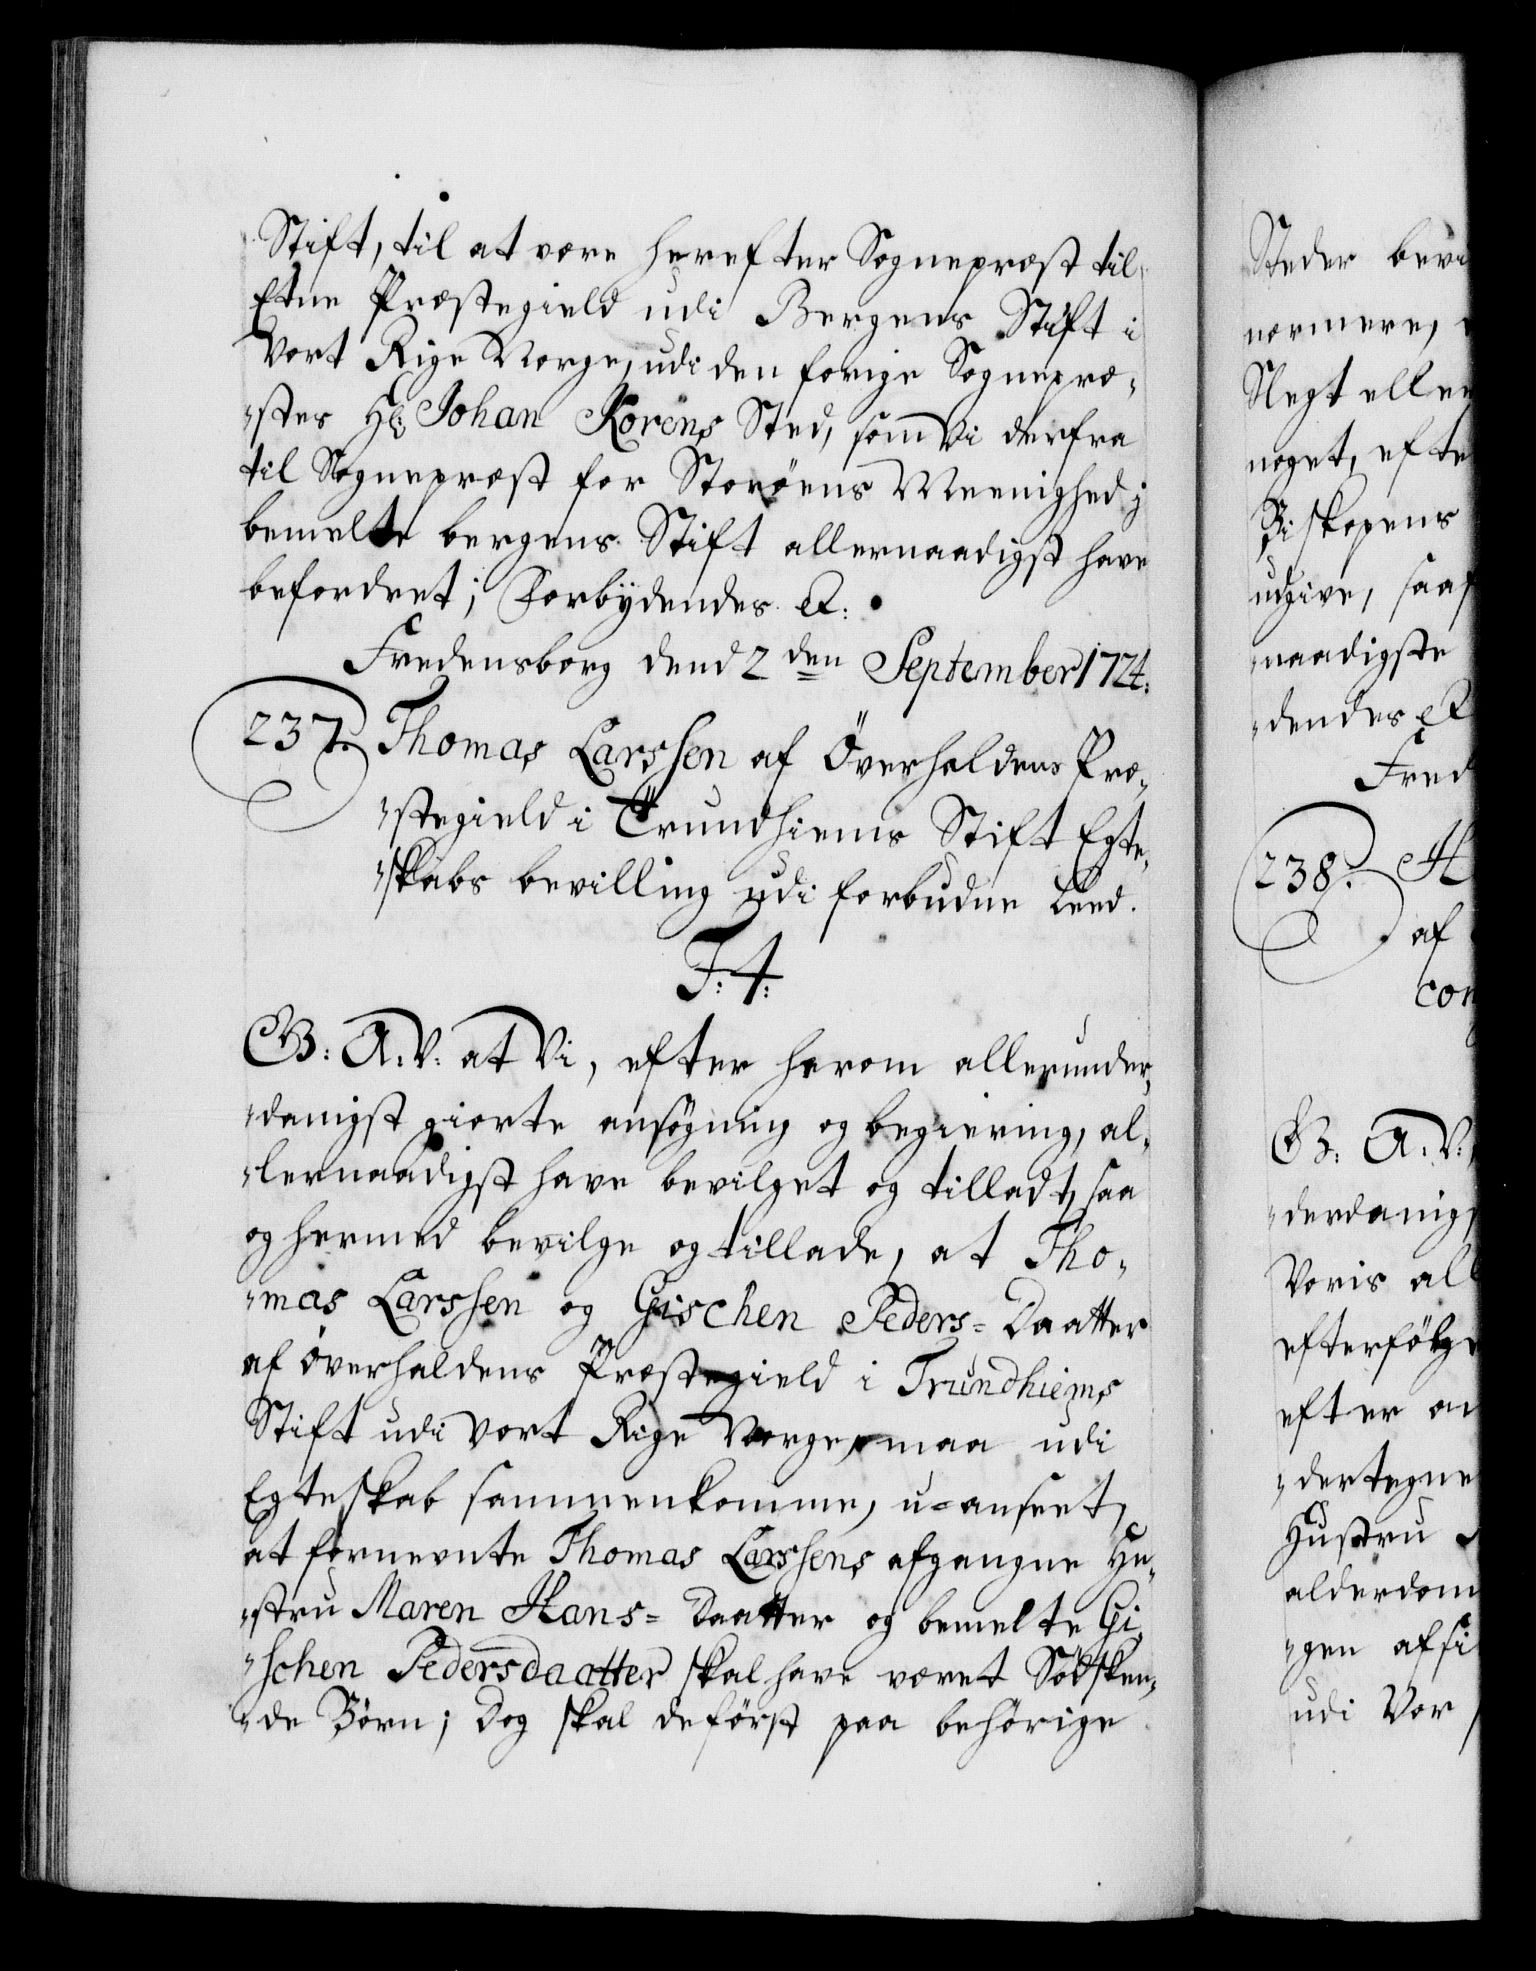 Stift, til at være herefter Sognepræst til
Etne Præstegield udi Bergens Stift i
Vort Rige Norge, udi den forige Sognepræ-
-stes Hr: Johan Korens Sted, som Vi derfra
til Sognepræst for Storöens Meenighed j
bemelte bergens Stift allernaadigst have
befordret; Forbÿdendes &:
Fredensborg dend 2den September 1724.
237. Thomas Larssen af Överhaldens Præ-
-stegield i Trundhiems Stift Egte-
-skabs bevilling udi forbudne Leed.
F: 4:
G: A: V: at Vi, efter herom allerunder-
-danigst giorte ansøgning og begiering, al-
-lernaadigst have bevilget og tilladt, saa
og hermed bevilge og tillade, at Tho-
-mas Larssen og Gischen Peders-Daatter
af Överhaldens Præstegield i Trundhiems
Stift udi Vort Rige Norge, maa udi
Egteskab sammenkomme, u-anseet,
at fornevnte Thomas Larssens afgangne Hu-
-stru Maren Hans-Daatter og bemelte Gi-
-schen Pedersdaatter skal have været Södsken-
-de Börn; Dog skal de först paa behörige
Steder bevi
nermere,
Slegt eller
noget, efte
Biskopens
udgive, saaf
-naadigste
-dendes &
Fred
238. H
af
con
G: A: V:
-derdanigs
Voris all
efterfölge
efter an
-dertegne
Hustru
alderdom
-gen afsi
udi Vor